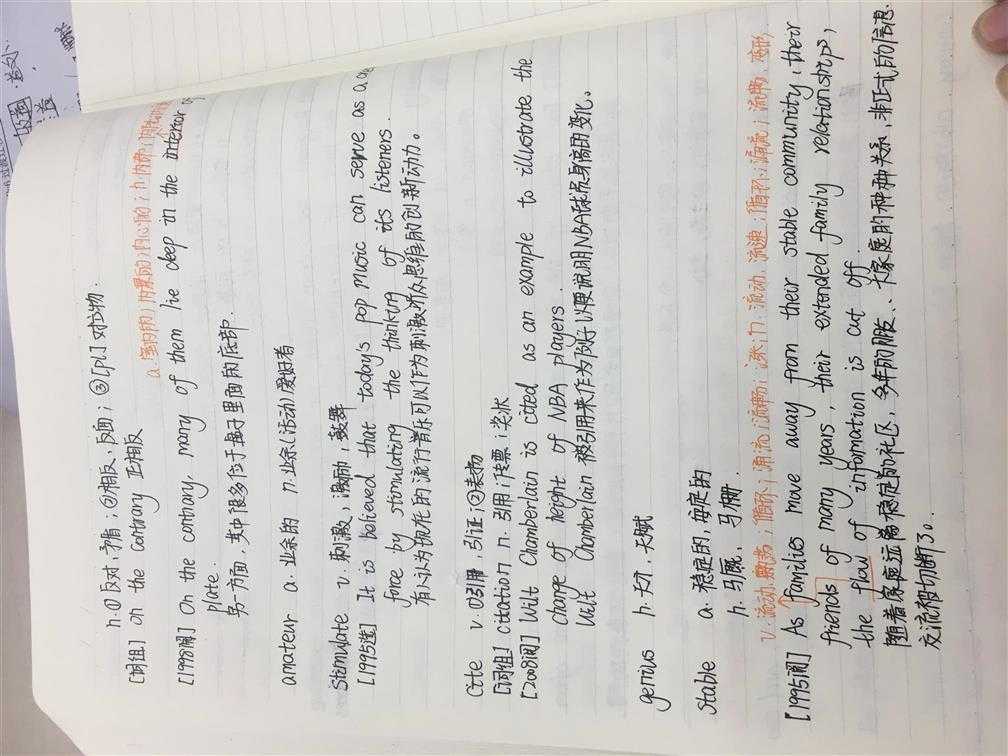 n. ①反对,矛盾;②相反、反面;③[pl.]对立物.
[词组] on the contrary 正相反
a. 室内的;内景的;内心的;n. 内部;
[1998阅] On the contrary, many of them lie deep in the interior of
plate.
另一方面,其中很多位于盘子里面的底部.
amateur a. 业余的 n. 业余(活动)爱好者
stimulate v. 刺激,激励,鼓舞
[1995选] It is believed that today's pop music can serve as a cre
force by stimulating the thinking of its listeners.
有人认为现在的流行音乐可以作为刺激听众思维的创新动力。
Cite v. ①引用,引证;②表扬
[词组] citation n. 引用;传票;奖状
[2008阅] Wilt Chamberlain is cited as an example to illustrate the
change of height of NBA players
Wilt Chamberlain 被引用来作为例子以便说明NBA球员身高的变化。
genius n. 天才,天赋
stable a. 稳定的,安定的
n. 马厩,马棚.
v. 流动,飘荡;循环;涌流;流畅;涨;n. 流动,流速;循环;涌流;流畅,
[1995阅] As families move away from their stable community, their
friends of many years, their extended family relationships,
the flow of information is cut off.
随着家庭远离稳定的社区,多年的朋友、大家庭的种种关系,非正式的信息
交流被切断了。